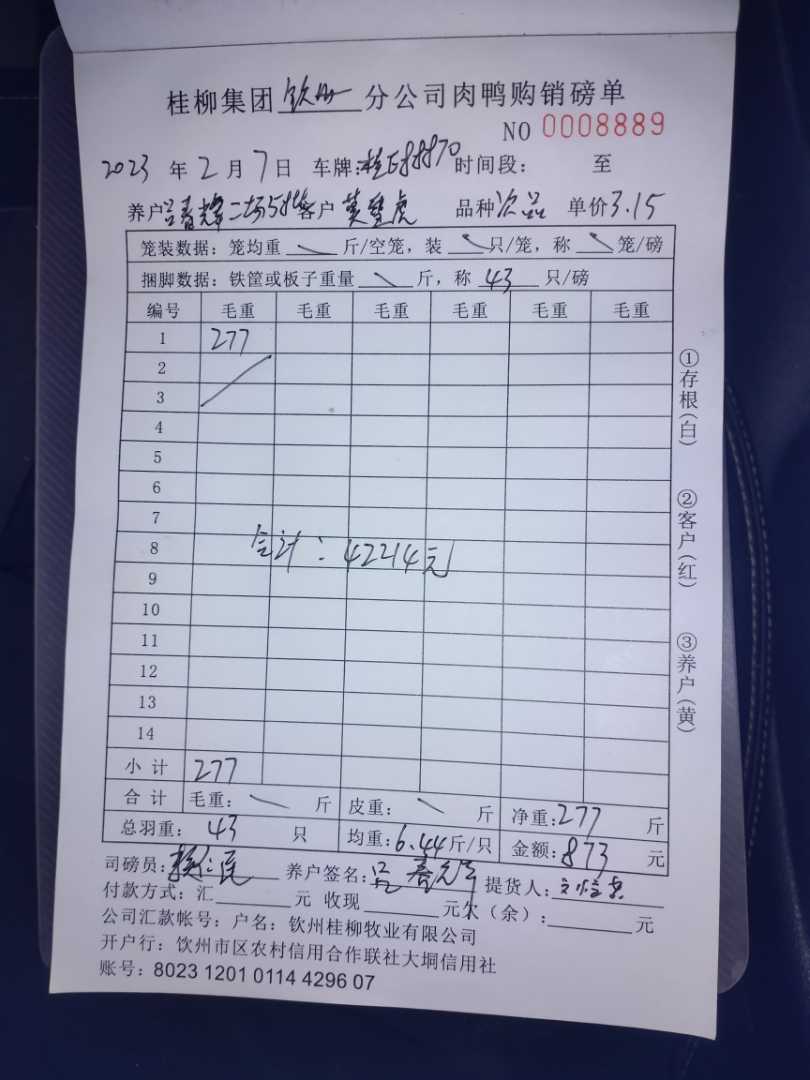 桂柳集团 钦州 分公司肉鸭购销磅单
NO 0008889
2023 年 2 月 7 日 车牌:桂E88870 时间段: 至
养户 吕春辉二场 客户 黄 虎 品种 次品 单价 3.15
笼装数据: 笼均重 斤/空笼, 装 只/笼, 称 笼/磅
捆脚数据: 铁筐或板子重量 斤, 称 43 只/磅
编号 毛重 毛重 毛重 毛重 毛重 毛重
1 277
2
3
4
5
6
7
8
合计: 42214元
9
10
11
12
13
14
小计 277
合计 毛重: 斤 皮重: 斤 净重: 277 斤
总羽重: 43 只 均重: 6.44 斤/只 金额: 873 元
司磅员: 养户签名: 吕春 提货人:
付款方式: 汇 元 收现 元欠(余): 元
公司汇款帐号: 户名: 钦州桂柳牧业有限公司
开户行: 钦州市区农村信用合作联社大垌信用社
账号: 8023 1201 0114 4296 07
①存根(白)
②客户(红)
③养户(黄)